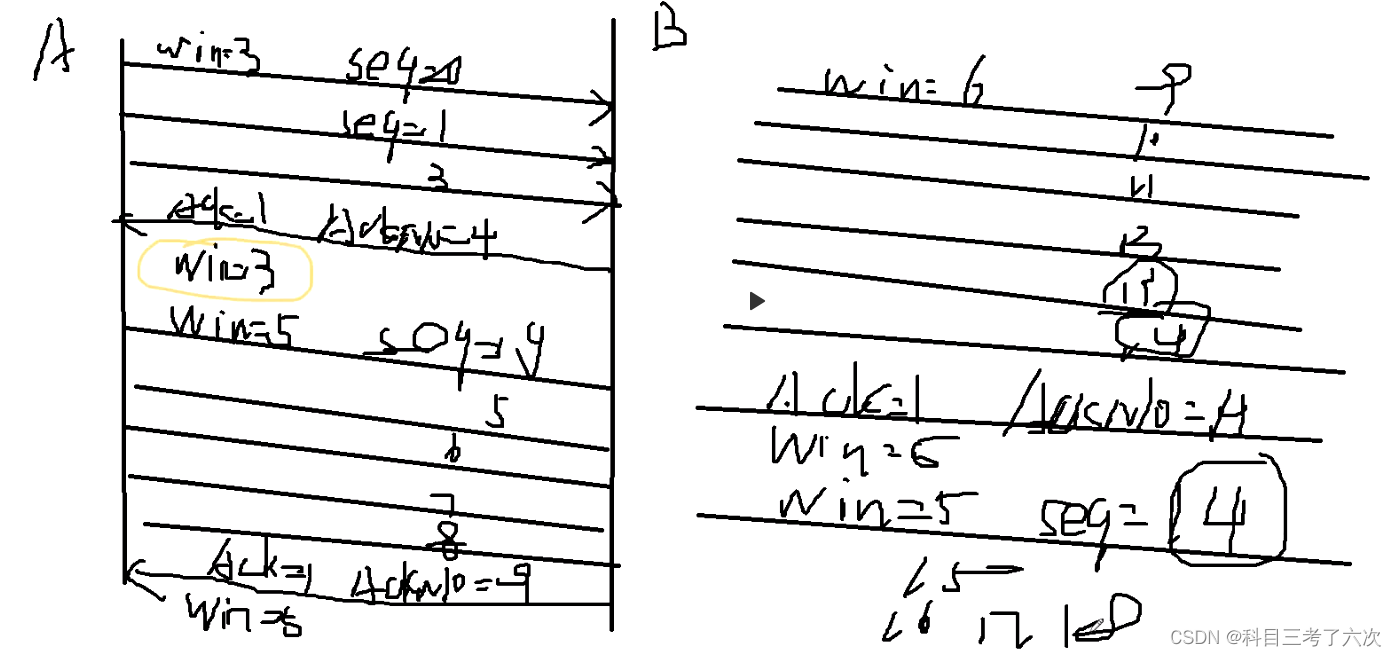 A
B
win=3 seq=0
seq=1
3
Ack=1 AckNo=4
win=3
win=5 seq=4
5
6
7
8
Ack=1 AckNo=9
win=6
win=6 9
10
11
12
13
14
Ack=1 AckNo=14
win=5 seq=14
15
16 17 18
CSDN @科目三考了六次